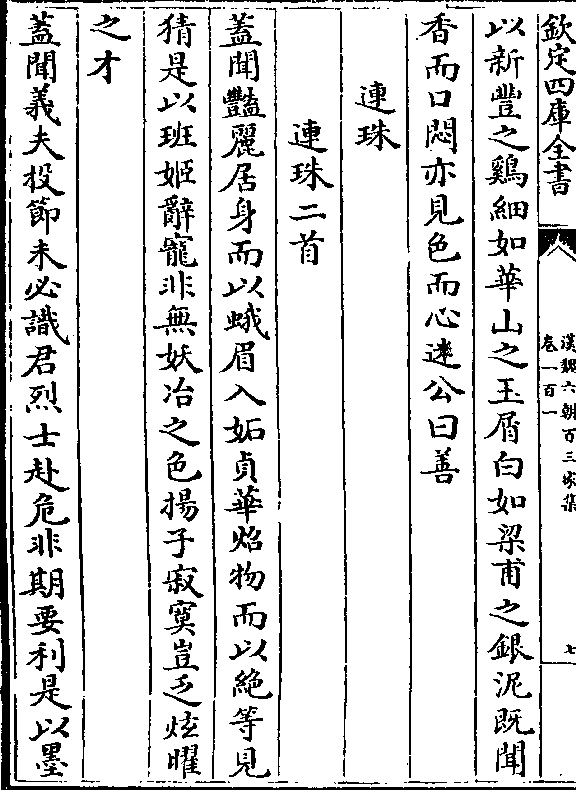 欽定四庫全書
漢魏六朝百三家集
卷一百一
七
以新豐之鷄細如華山之玉屑白如梁甫之銀泥既聞
香而口悶亦見色而心迷公曰善
連珠
連珠二首
蓋聞豔麗居身而以蛾眉入妬貞華炤物而以絶等見
猜是以班姬辭寵非無妖冶之色揚子寂寞豈乏炫曜
之才
蓋聞義夫投節未必識君烈士赴危非期要利是以墨